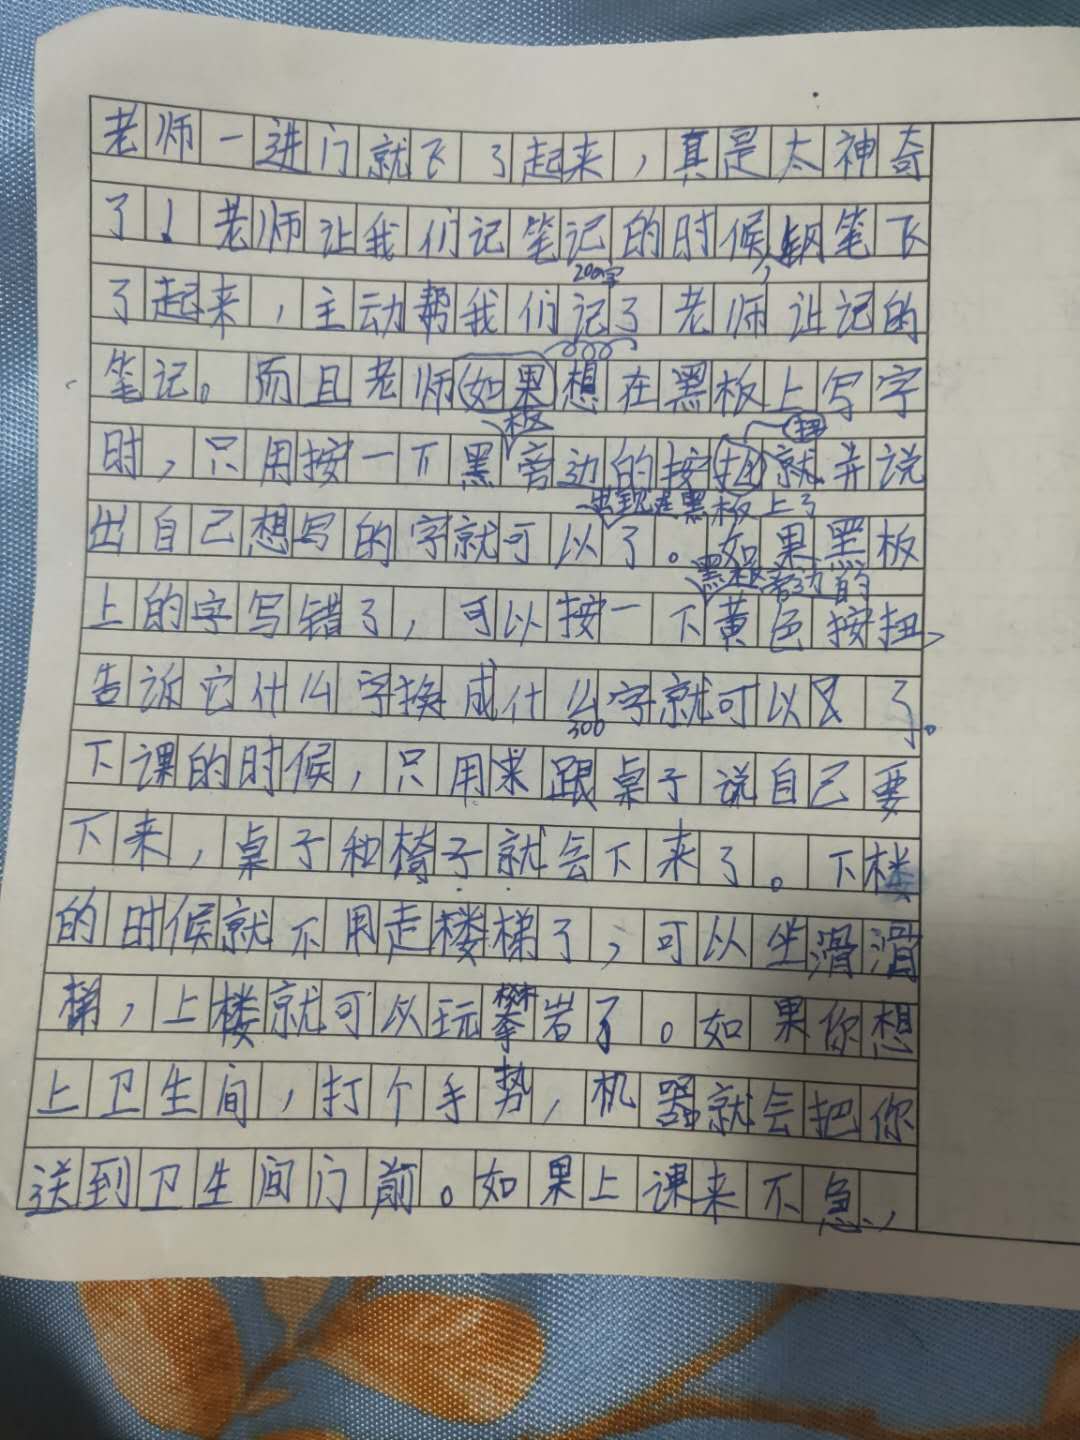 老师一进门就飞了起来，真是太神奇
了！老师让我们记笔记的时候，钢笔飞
200字
了起来，主动帮我们记了老师让记的
笔记。而且老师如果想在黑板上写字
板
扭
时，只用按一下黑旁边的按扭就并说
出现在黑板上了
出自己想写的字就可以了。如果黑板
黑板旁边的
上的字写错了，可以按一下黄色按扭，
告诉它什么字换成什么字就可以了。
300
下课的时候，只用求跟桌子说自己要
下来，桌子和椅子就会下来了。下楼
的时候就不用走楼梯了，可以坐滑滑
梯，上楼就可以玩攀岩了。如果你想
上卫生间，打个手势，机器就会把你
送到卫生间门前。如果上课来不急，